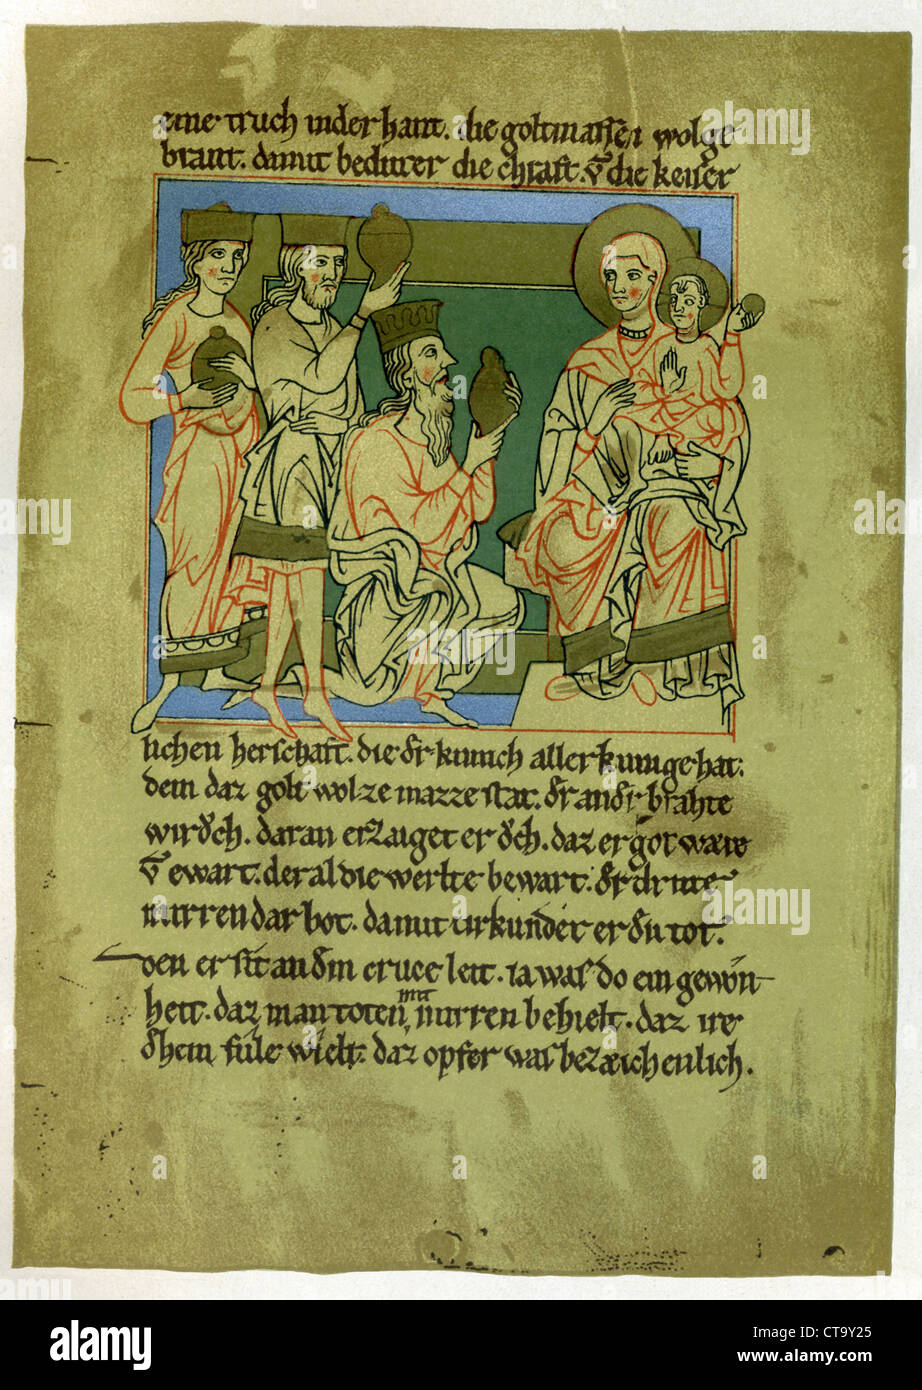 eine truch in der hant. die goltmassen wolge
brant. damit bedutet er die chraft. vn̄ die keiser
lichen herschaft. die d̕r kunich aller kunige hat.
dem daz golt wol ze mazze stat. d̕r and̕r brahte
wirǒch. daran erzaiget er ǒch. daz er got wære
vn̄ ewart. der al die werlte bewart. d̕r dritte
mirren dar bot. damit urkundet er dē tot.
den er sit an dem cruce leit. ia was do ein gewon
heit. daz man toten mit mirren behielt. daz ire
dhein fule wielt. daz opfer was bezæichenlich.
alamy
Image ID: CT9Y25
www.alamy.com